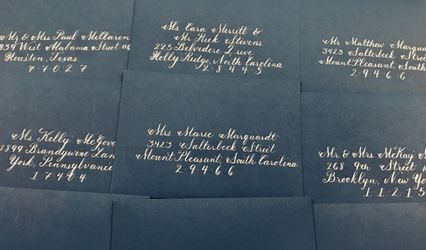 Mr & Mrs Paul McClaren
939 West Alabama Street #6
Houston, Texas
77027
Ms Cara Merrett &
Mr Rick Stevens
225 Belvedere Drive
Holly Ridge, North Carolina
28445
Mr Matthew Marquar
3423 Salterbeck Street
Mount Pleasant, South
29466
Ms Kelly McGove
1899 Brandywine Lan
York, Pennsylvania
17404
Mrs Marie Marquardt
3423 Salterbeck Street
Mount Pleasant, South Carolina
29466
Mr & Mrs McKay
268 9th Street
Brooklyn, New Yo
11215